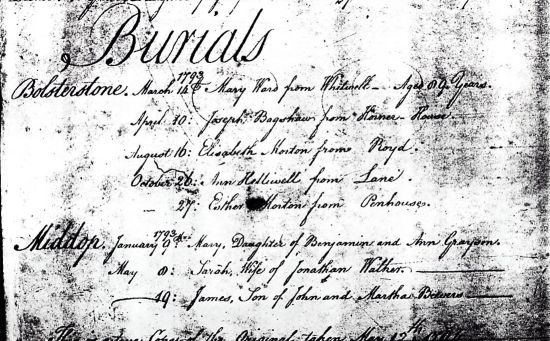 Burials
Bolsterstone. March 14th 1793 Mary Ward from Whitwell - Aged 89 Years.
April 30: Joseph Bagshaw from Horner-House.
August 16: Elisabeth Morton from Royd.
October 26: Ann Helliwell from Lane.
27: Esther Morton from Penhouses.
Middop. January 9th 1793 Mary, Daughter of Benjamin and Ann Grayson.
May 8: Sarah, Wife of Jonathan
19: James, Son of John and Martha Bevers
This a true Copy of the Original taken May 12th